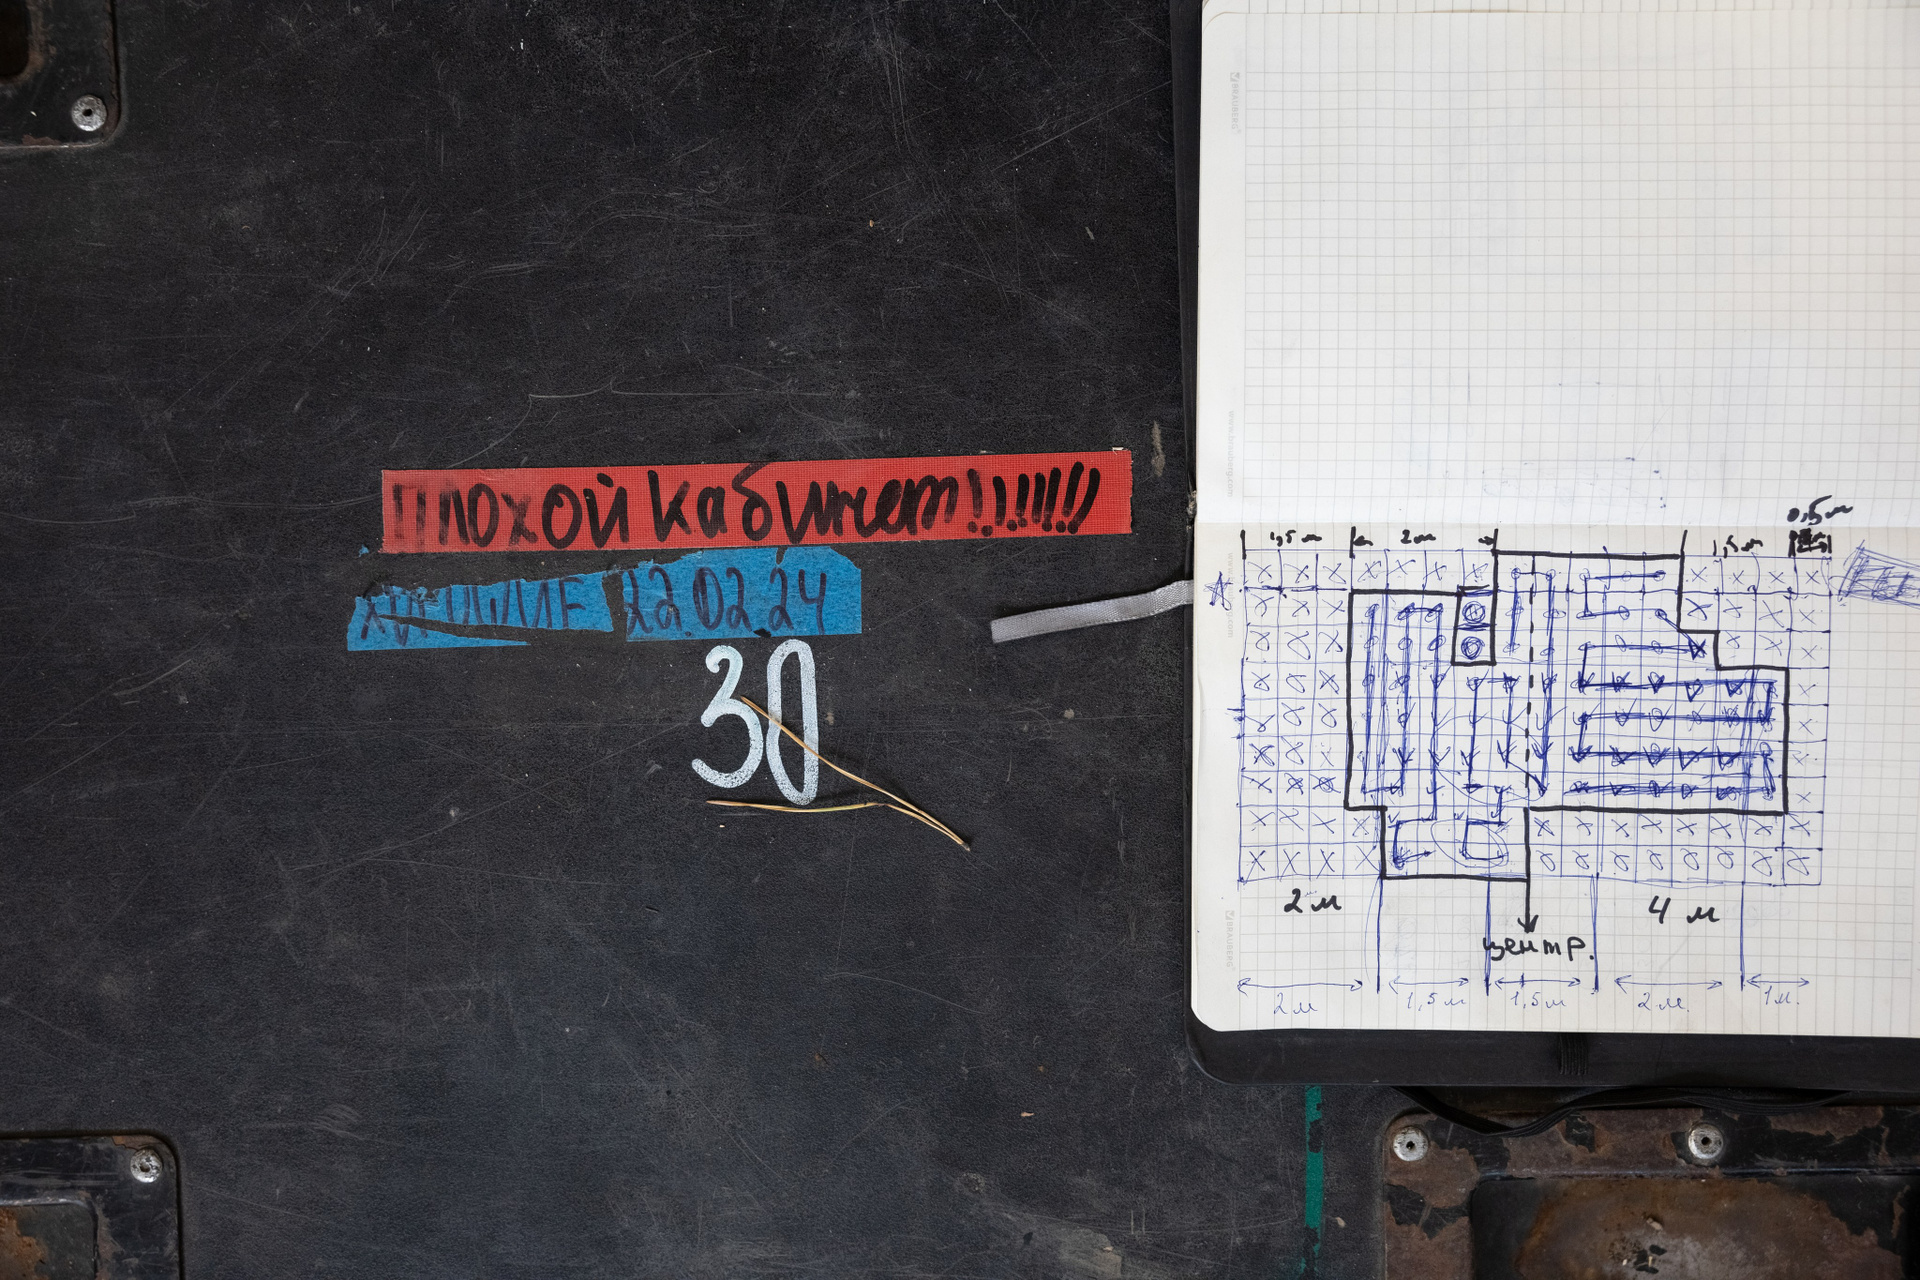 Плохой кабинет!!!!!!!
22.02.24
30
BRAUBERG
0,5м
1,5м 2м 1,5м
2м 4м
центр.
2м 1,5м 1,5м 2м. 1м.
BRAUBERG